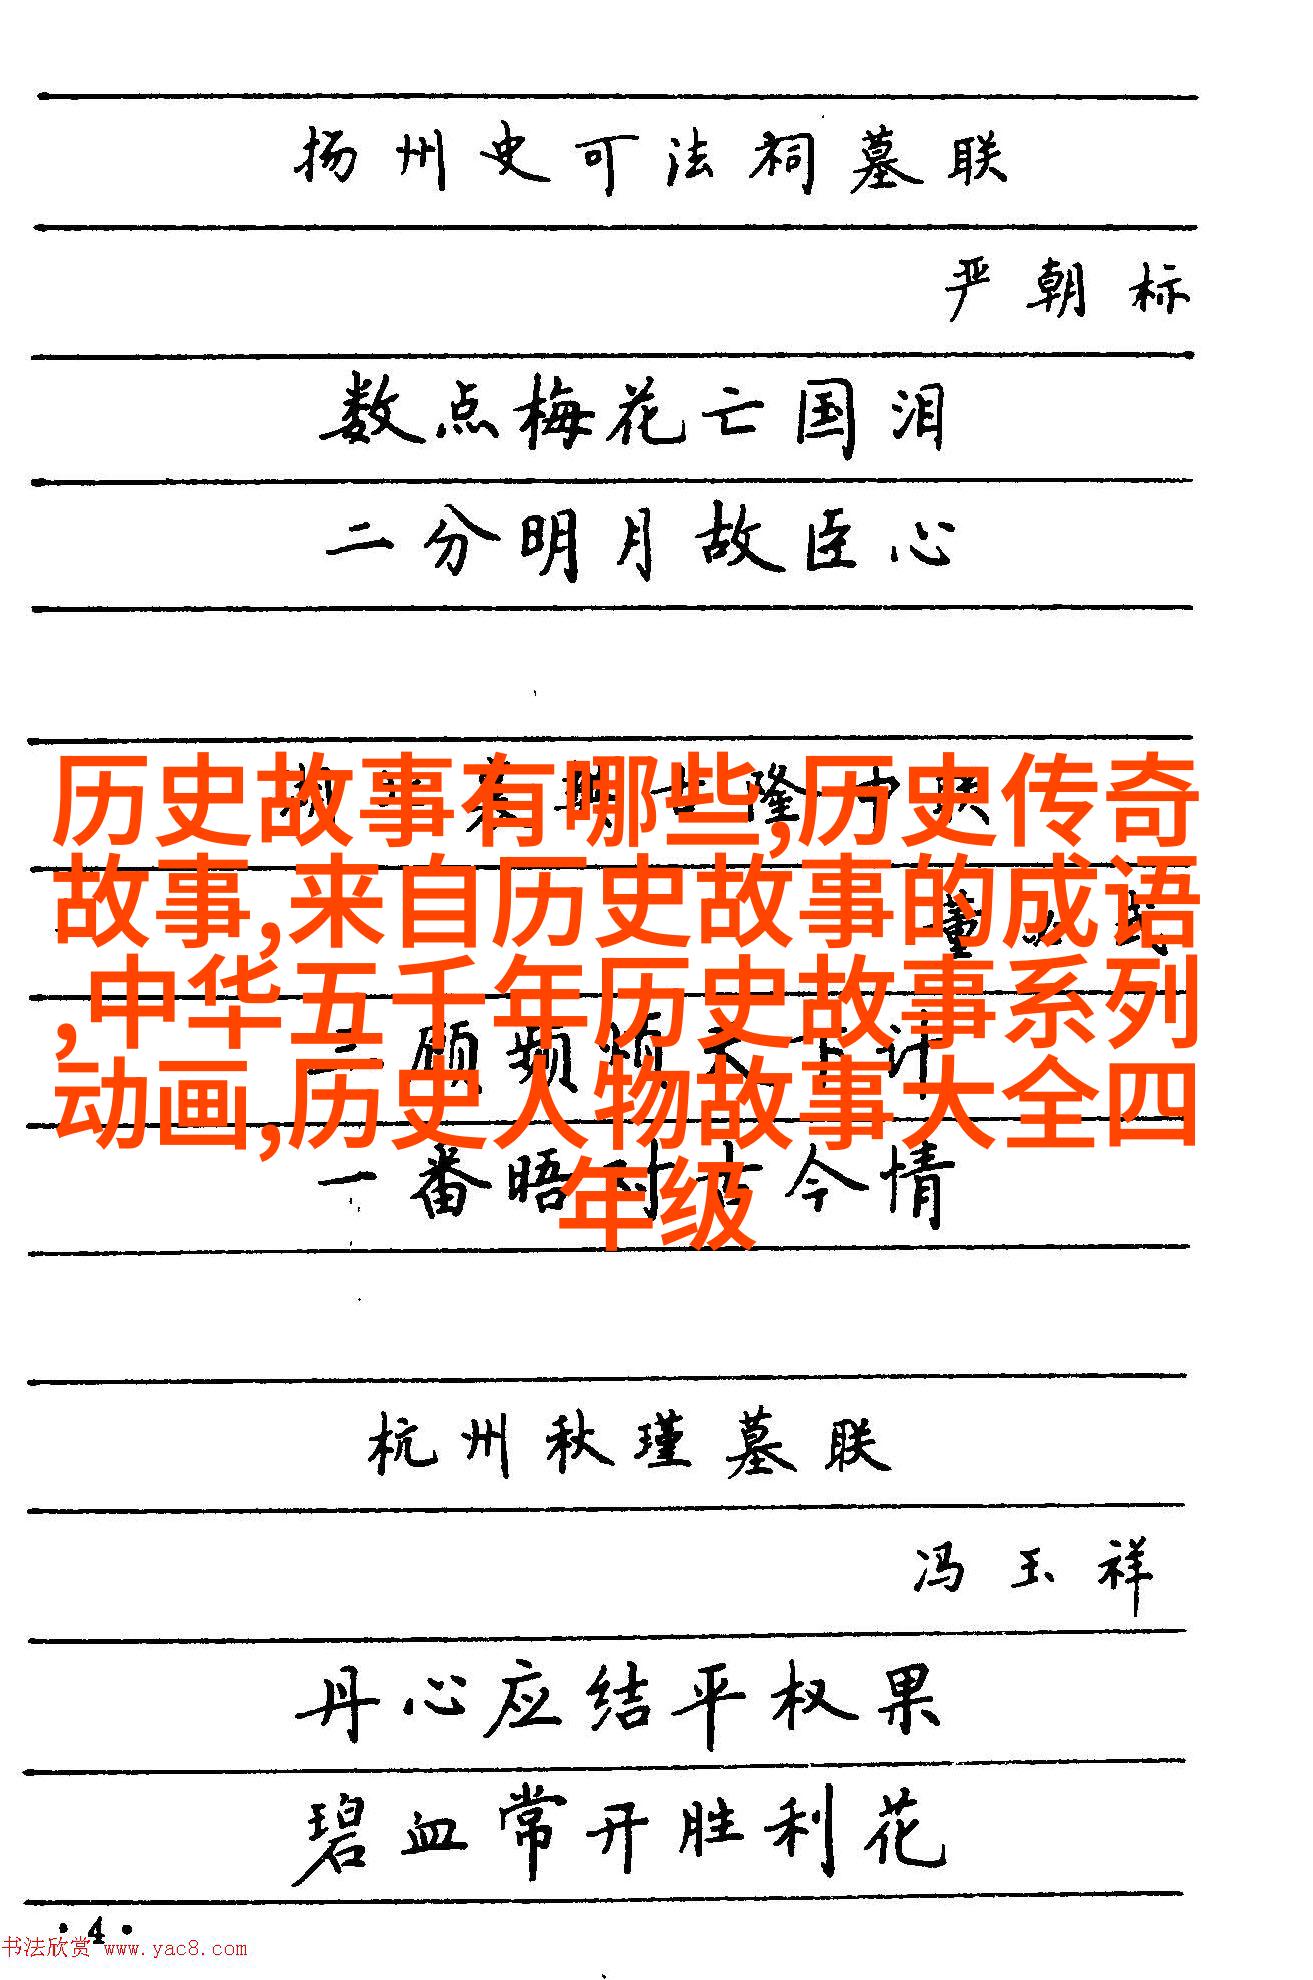 扬州史可法祠墓联
严朝标
数点梅花亡国泪
二分明月故臣心
历史故事有哪些,历史传奇
故事,来自历史故事的成语
,中华五千年历史故事系列
动画,历史人物故事大全四
年级
隆中联
董
三顾频烦天下计
一番晤对古今情
杭州秋瑾墓联
冯玉祥
丹心应结平权果
碧血常开胜利花
·4·
书法欣赏 www.yac8.com